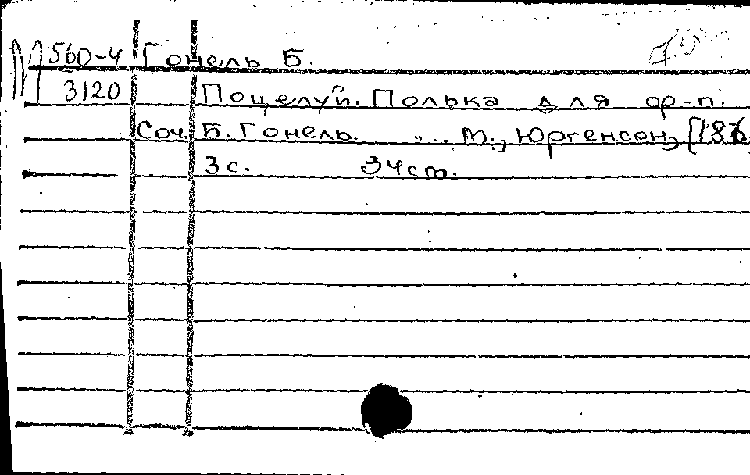 560-4 Гонель Б.
3120 Поцелуй. Полька для ф-п.
Соч. Б. Гонель. М., Юргенсон, [186
3 с. 34 см.